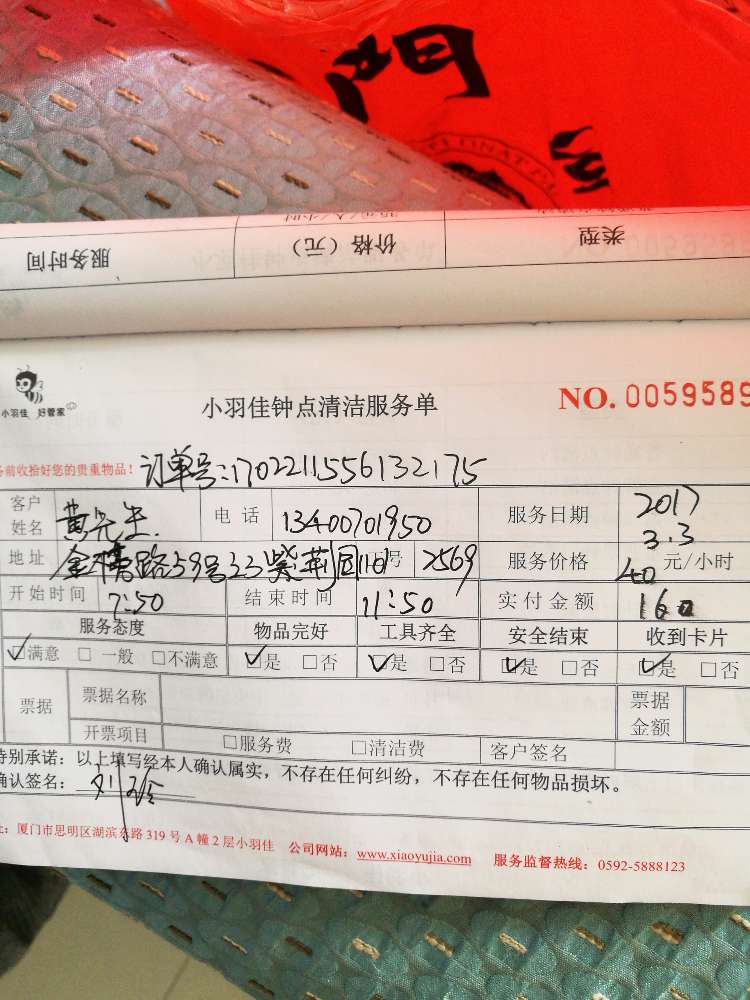 门
服务时间 价格（元） 类型
小羽佳 好管家
小羽佳钟点清洁服务单
NO. 0059589
务前收拾好您的贵重物品！ 订单号：1702211556132175
客户姓名 黄先生 电话 13400701950 服务日期 2017 3.3
地址 金榜路59号23紫荆园1101 号 2569 服务价格 40 元/小时
开始时间 7:50 结束时间 11:50 实付金额 160
服务态度 物品完好 工具齐全 安全结束 收到卡片
☑满意 □一般 □不满意 ☑是 □否 ☑是 □否 ☑是 □否 ☑是 □否
票据 票据名称 票据金额
开票项目 □服务费 □清洁费 客户签名
特别承诺：以上填写经本人确认属实，不存在任何纠纷，不存在任何物品损坏。
确认签名：刘玲
址：厦门市思明区湖滨东路 319 号 A 幢 2 层小羽佳 公司网站：www.xiaoyujia.com 服务监督热线：0592-5888123